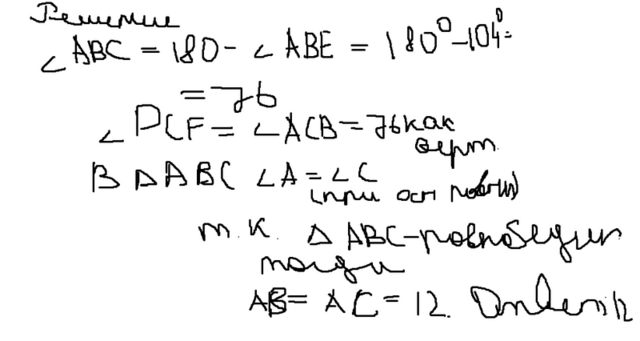 Решение
∠ABC = 180 - ∠ABE = 180° - 104° =
= 76
∠DCF = ∠ACB = 76 как
верт.
В ΔABC ∠A = ∠C
(при осн
т.к. ΔABC - равнобедрен
тогда
AB = AC = 12. Ответ: 12